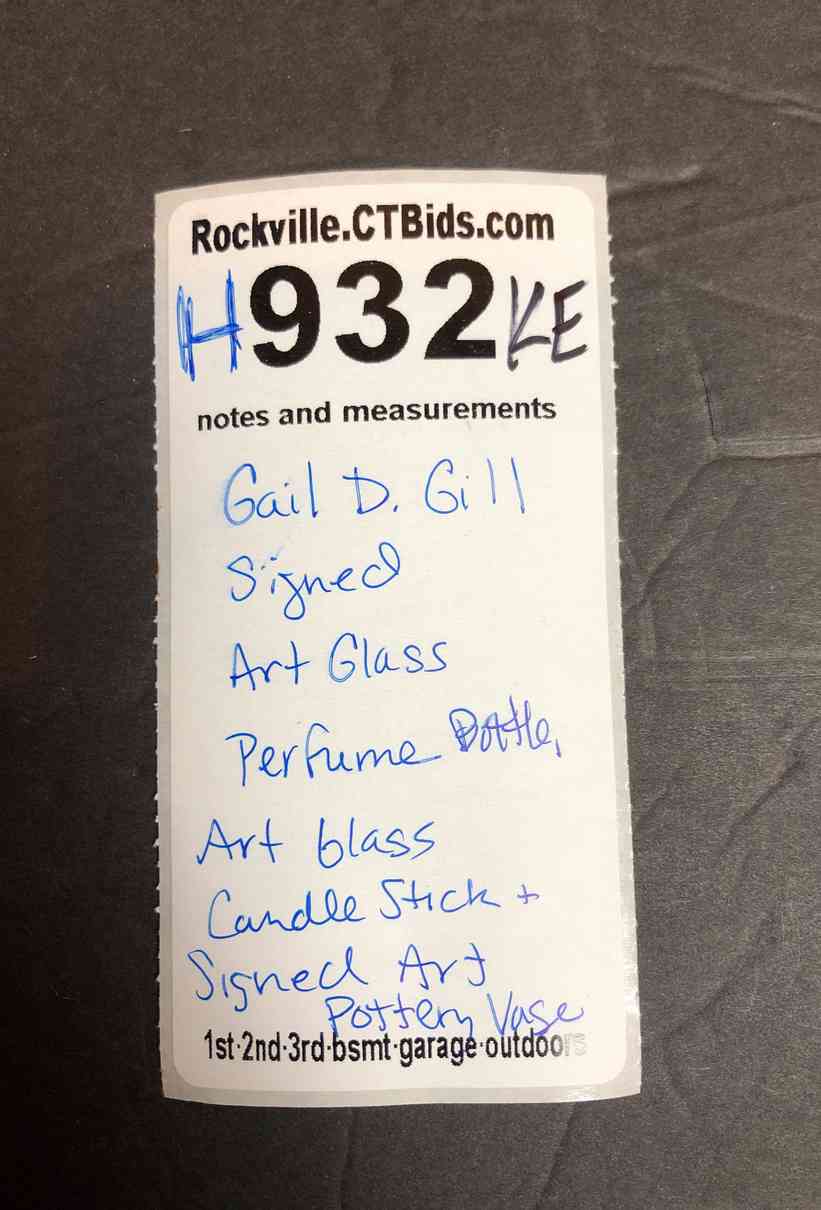 Rockville.CTBids.com
H932KE
notes and measurements
Gail D. Gill
Signed
Art Glass
Perfume Bottle,
Art Glass
Candle Stick +
Signed Art
Pottery Vase
1st·2nd·3rd·bsmt·garage·outdoors